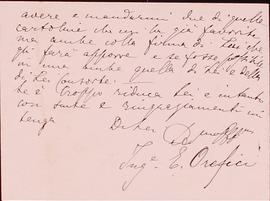 avere e mandarmi due di quelle
cartoline che mi ha già favorite
ma anche colla firma di Lei che
gli farà apporre e se fosse possibile
in una anche quella di Lei e della
di Lei Consorte.
Se è troppo riduca Lei e intanto
con sente e ringraziamenti in
tenza
Di Lei
Ing.e E. Orefici